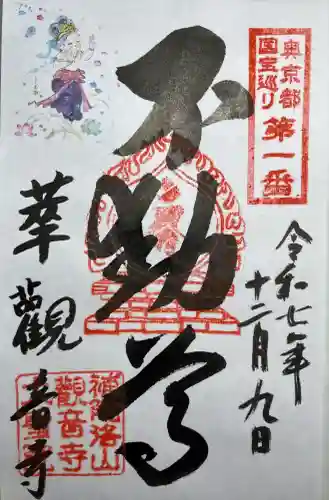 奥京都
国宝巡り
第一番
令和七年
十二月九日
不動尊
華觀音寺
補陀洛山
觀音寺